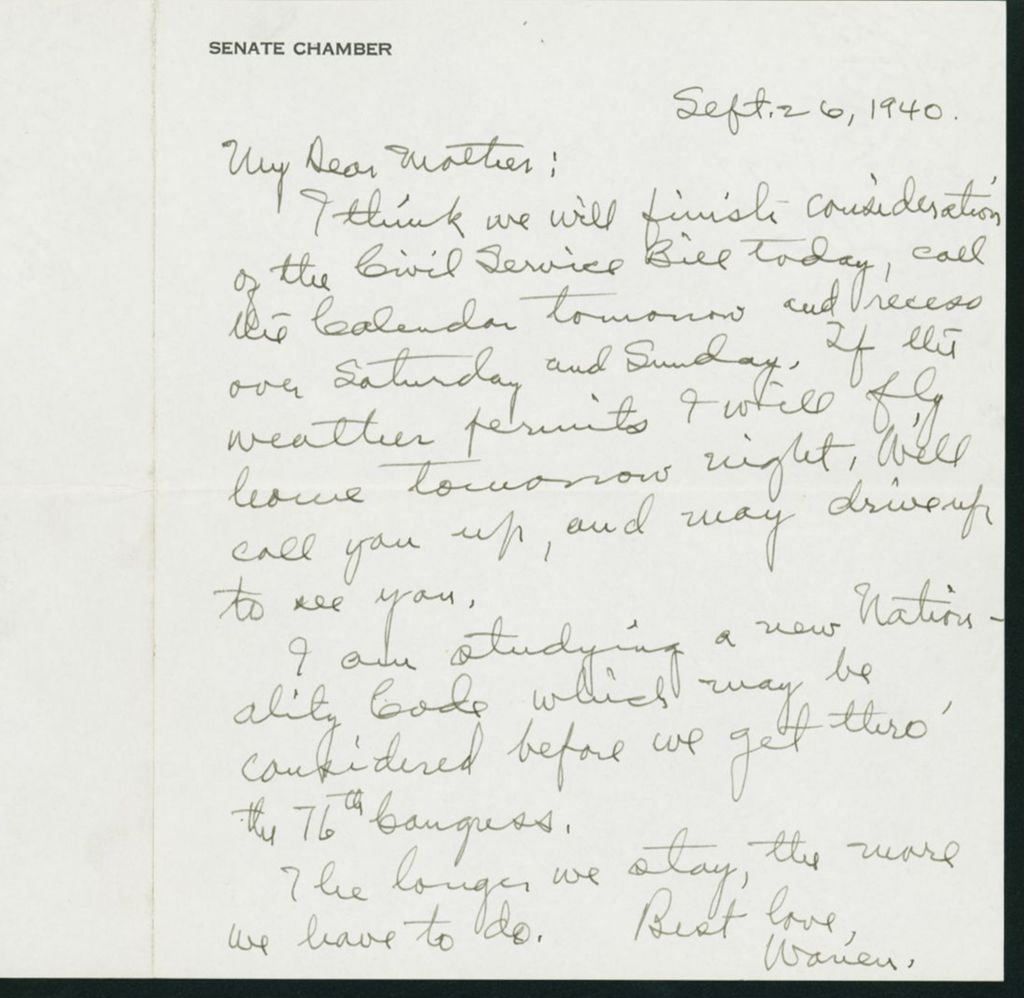 SENATE CHAMBER
Sept. 26, 1940.
My Dear Mother:
I think we will finish consideration
of the Civil Service Bill today, call
the Calendar tomorrow and recess
over Saturday and Sunday. If the
weather permits I will fly
home tomorrow night. Will
call you up, and may drive up
to see you.
I am studying a new Nation-
ality Code which may be
considered before we get thro'
the 76th Congress.
The longer we stay, the more
we have to do. Best love,
Warren.